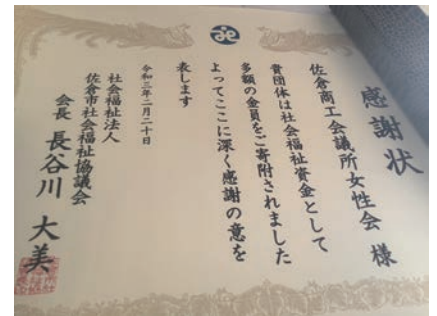 感謝状
佐倉商工会議所女性会 様
貴団体は社会福祉資金として
多額の金員をご寄附されました
よってここに深く感謝の意を
表します
令和三年二月二十日
社会福祉法人
佐倉市社会福祉協議会
会長 長谷川 大美